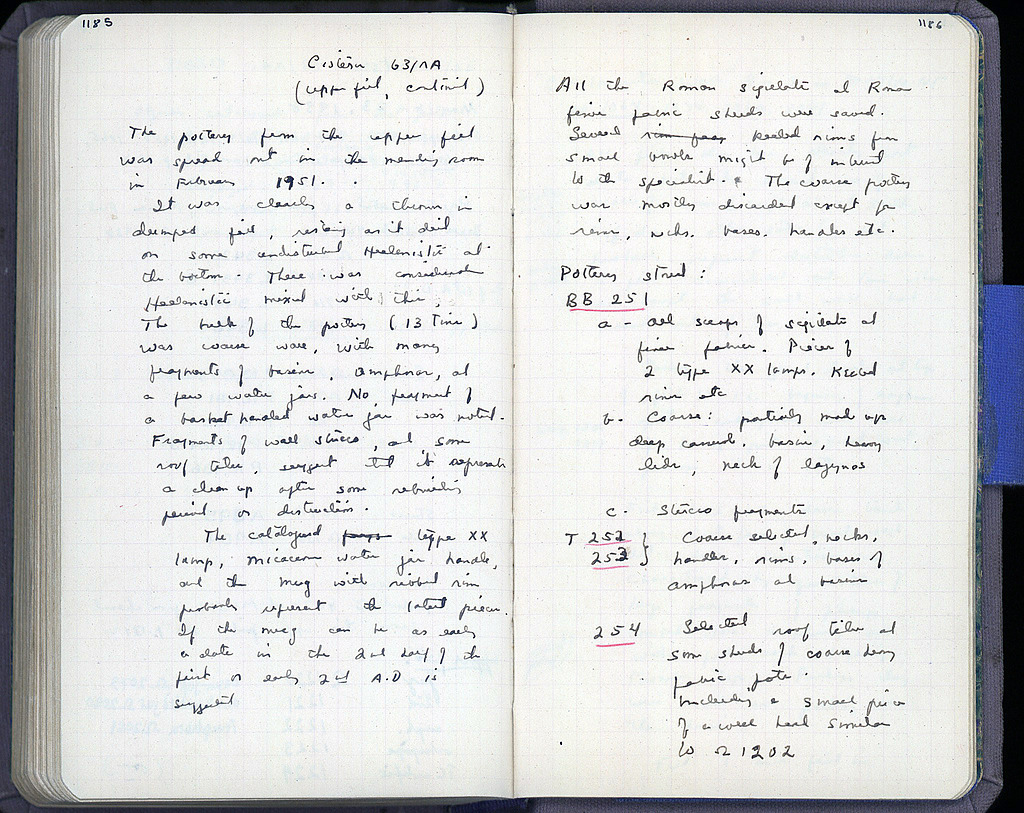 1185
Cistern 63/NA
(upper fill, continued)
The pottery from the upper fill
was spread out in the mending room
in February 1951.
It was clearly a thrown in
dumped fill, resting as it did
on some undisturbed Hellenistic at
the bottom. There was considerable
Hellenistic mixed with this,
The bulk of the pottery (13 tins)
was coarse ware, with many
fragments of basins, amphoras, and
a few water jars. No fragment of
a basket handled water jar was noted.
Fragments of wall stucco, and some
roof tiles, suggest that it represents
a clean up after some rebuilding
period or destruction.
The catalogued type XX
lamp, micaceous water jar handle,
and the mug with ribbed rim
probably represent the latest pieces.
If the mug can be as early
a date in the 2nd of the
first or early 2nd A.D is
suggested
1186
All the Roman sigillata and Roman
finer fabric sherds were saved.
Several keeled rims from
small bowls might be of interest
to the specialist. The coarse pottery
was mostly discarded except for
rims, necks, bases, handles etc.
Pottery stored:
BB 251
a - All scraps of sigillata and
finer fabrics. Pieces of
2 type XX lamps. Keeled
rims etc
b - Coarse: partially made up
deep casserole, basin, heavy
lids, neck of lagynos
c. Stucco fragments
T 252 } Coarse selected, necks,
253 } handles, rims, bases of
amphoras and basins
254 Selected roof tiles and
some sherds of coarse heavy
fabric pots.
Including a small piece
of a well head similar
to Ω 1202